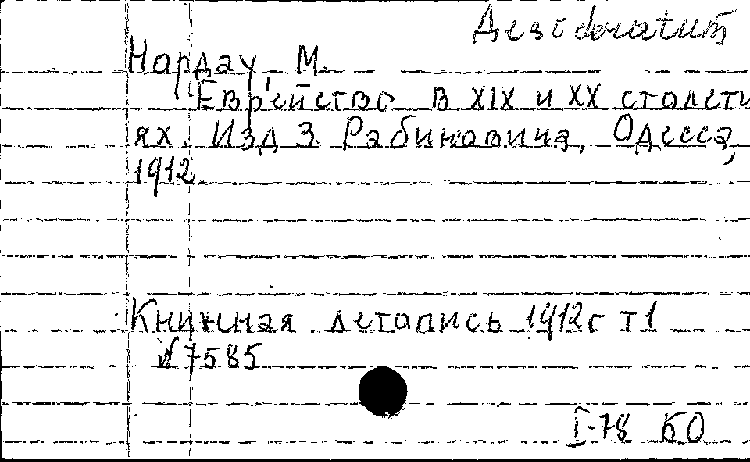 Desideratum
Нардау, М.
Еврейство в XIX и XX столети
ях. Изд З. Рабиновича, Одесса,
1912.
Книжная летопись 1912г т1
№7585
I-78 БО